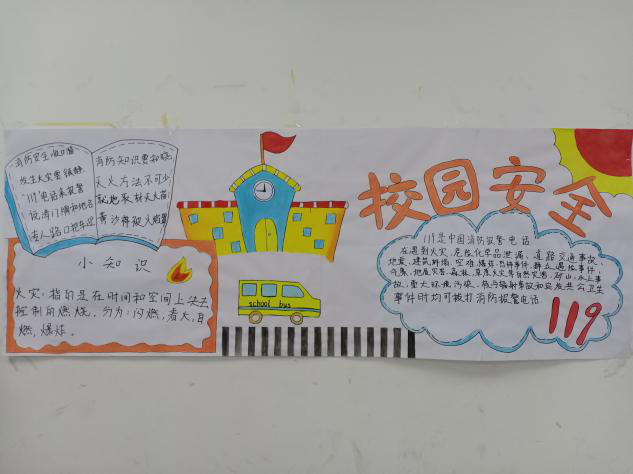 消防安全顺口溜
发生火灾要镇静
119电话来报警
说清门牌和地名
消防知识要知晓
灭火方法不可少
就地取材灭火苗
黄沙棉被火焰盖
小知识
火灾：指的是在时间和空间上失去
控制的燃烧。分为：闪燃，着火，自
燃，爆炸。
school bus
校园安全
119是中国消防报警电话
在遇到火灾、危险化学品泄漏、道路交通事故、
地震、建筑坍塌、空难、爆炸、恐怖事件、群众遇险事件，
地质灾害、森林、草原火灾等自然灾害、矿山、水上事
故，重大环境污染、核与辐射事故和突发公共卫生
事件时均可拨打消防报警电话
119